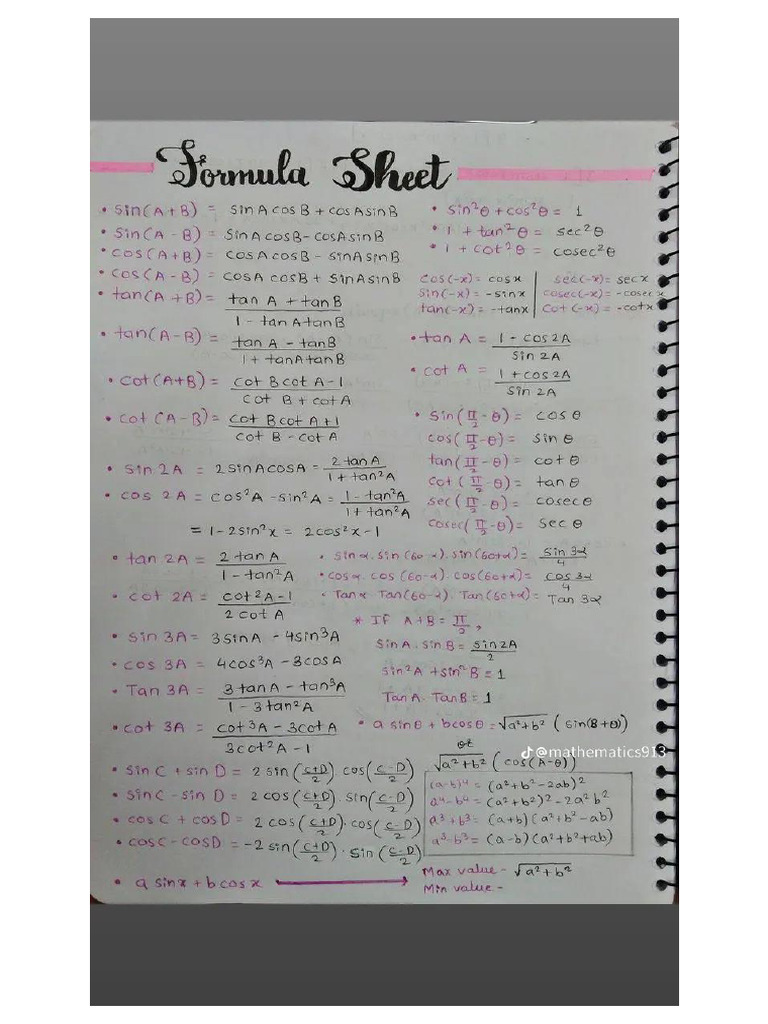 Formula Sheet
• sin(A+B) = sinAcosB + cosAsinB
• sin(A-B) = SinAcosB - cosAsinB
• cos(A+B) = cosAcosB - sinAsinB
• cos(A-B) = cosA cosB + sinAsinB
• tan(A+B) = (tan A + tanB)/(1 - tanAtanB)
• tan(A-B) = (tan A - tanB)/(1 + tanAtanB)
• cot(A+B) = (cot B cot A - 1)/(cot B + cot A)
• cot(A-B) = (cot B cot A + 1)/(cot B - cot A)
• sin 2A = 2sinAcosA = (2 tanA)/(1 + tan²A)
• cos 2A = cos²A - sin²A = (1 - tan²A)/(1 + tan²A)
= 1 - 2sin²x = 2cos²x - 1
• tan 2A = (2 tan A)/(1 - tan²A)
• cot 2A = (cot²A - 1)/(2 cot A)
• sin 3A = 3sinA - 4sin³A
• cos 3A = 4cos³A - 3cosA
• Tan 3A = (3 tanA - tan³A)/(1 - 3tan²A)
• cot 3A = (cot³A - 3cotA)/(3cot²A - 1)
• sin C + sin D = 2 sin((C+D)/2) cos((C-D)/2)
• sin C - sin D = 2 cos((C+D)/2). sin((C-D)/2)
• cos C + cos D = 2 cos((C+D)/2). cos((C-D)/2)
• cosC - cosD = -2 sin((C+D)/2) . Sin((C-D)/2)
• a sinx + b cosx ⟶ Max value - √a²+b²
Min value -
• sin²θ + cos²θ = 1
• 1 + tan²θ = sec²θ
• 1 + cot²θ = cosec²θ
cos(-x) = cosx | sec(-x) = secx
sin(-x) = -sinx | cosec(-x) = -cosec x
tan(-x) = -tanx | cot(-x) = -cotx
• tan A = (1 - cos2A)/(Sin 2A)
• cot A = (1 + cos2A)/(sin 2A)
• Sin(π/2 - θ) = cosθ
cos(π/2 - θ) = sinθ
tan(π/2 - θ) = cotθ
cot(π/2 - θ) = tanθ
sec(π/2 - θ) = cosecθ
cosec(π/2 - θ) = Secθ
• sinα. sin(60-α). sin(60+α) = sin 3α/4
• cosα. cos(60-α). cos(60+α) = cos 3α/4
• Tanα Tan(60-α). Tan(60+α) = Tan 3α
* If A+B = π/2,
SinA. sinB = sin2A/2
sin²A + sin²B = 1
TanA. TanB = 1
• a sinθ + bcosθ = √a²+b² (sin(B+θ))
or
√a²+b² (cos(A-θ))
@mathematics913
(a-b)⁴ = (a²+b²-2ab)²
a⁴-b⁴ = (a²+b²)²-2a²b²
a³+b³ = (a+b)(a²+b²-ab)
a³-b³ = (a-b)(a²+b²+ab)